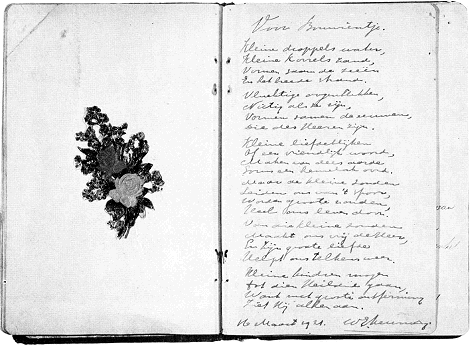 Voor Bouwientje.
Kleine droppels water,
Kleine korrels zand,
Vormen saam de zeeën
En het breede strand.
Vluchtige oogenblikken,
Nietig als ze zijn,
Vormen samen de eeuwen,
die des Heeren zijn.
Kleine liefdeblijken
Of een vriendlijk woord,
Maken van dees aarde
soms een hemelsch oord.
Maar de kleine zonden
Leiden ons van 't spoor,
Worden groote zonden
Heel ons leven door.
Van die kleine zonden
Macht ons vrij
En Zijn groote liefde
Helpt ons telkens weer.
Kleine kindren mogen
tot dien Heiland gaan,
Want met groote ontferming
Ziet Hij allen aan.
16 Maart 1921.